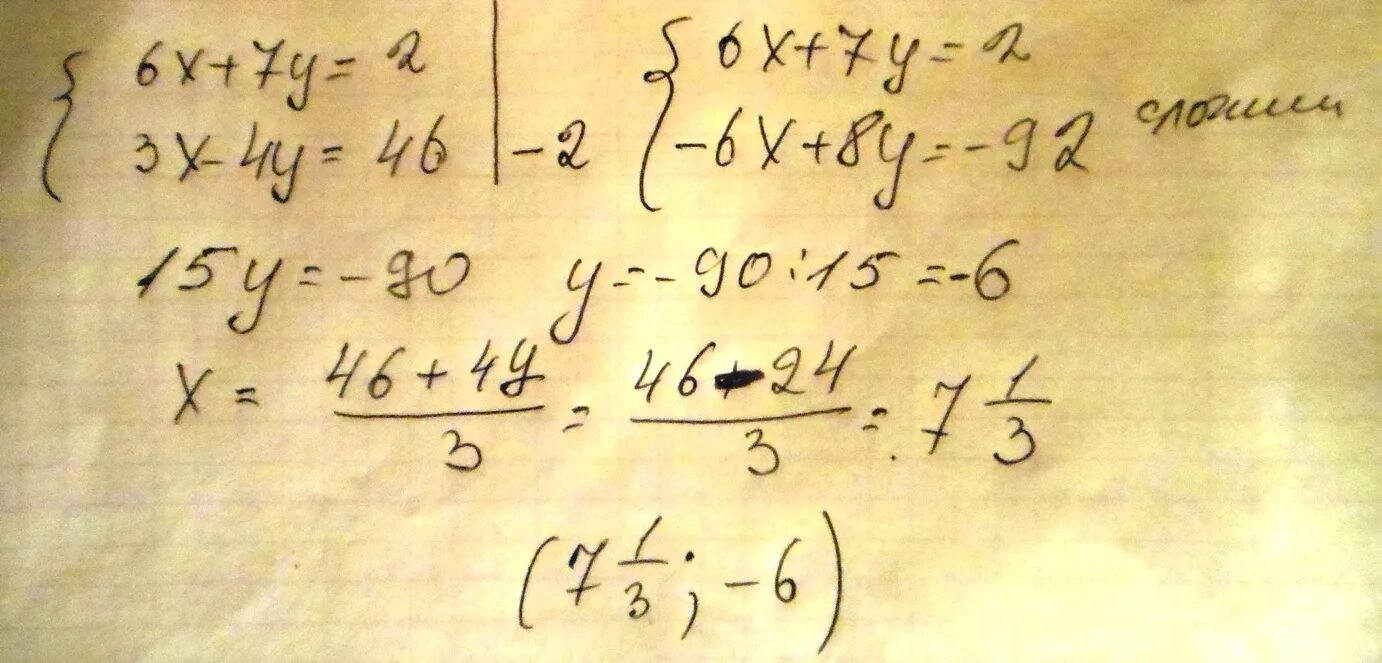 { 6x+7y= 2 | { 6x+7y= 2
3x-4y= 46 | -2 -6x+8y=-92 сложим
15y=-90 y=-90:15=-6
x = (46+4y)/3 = (46-24)/3 = 7 1/3
(7 1/3; -6)